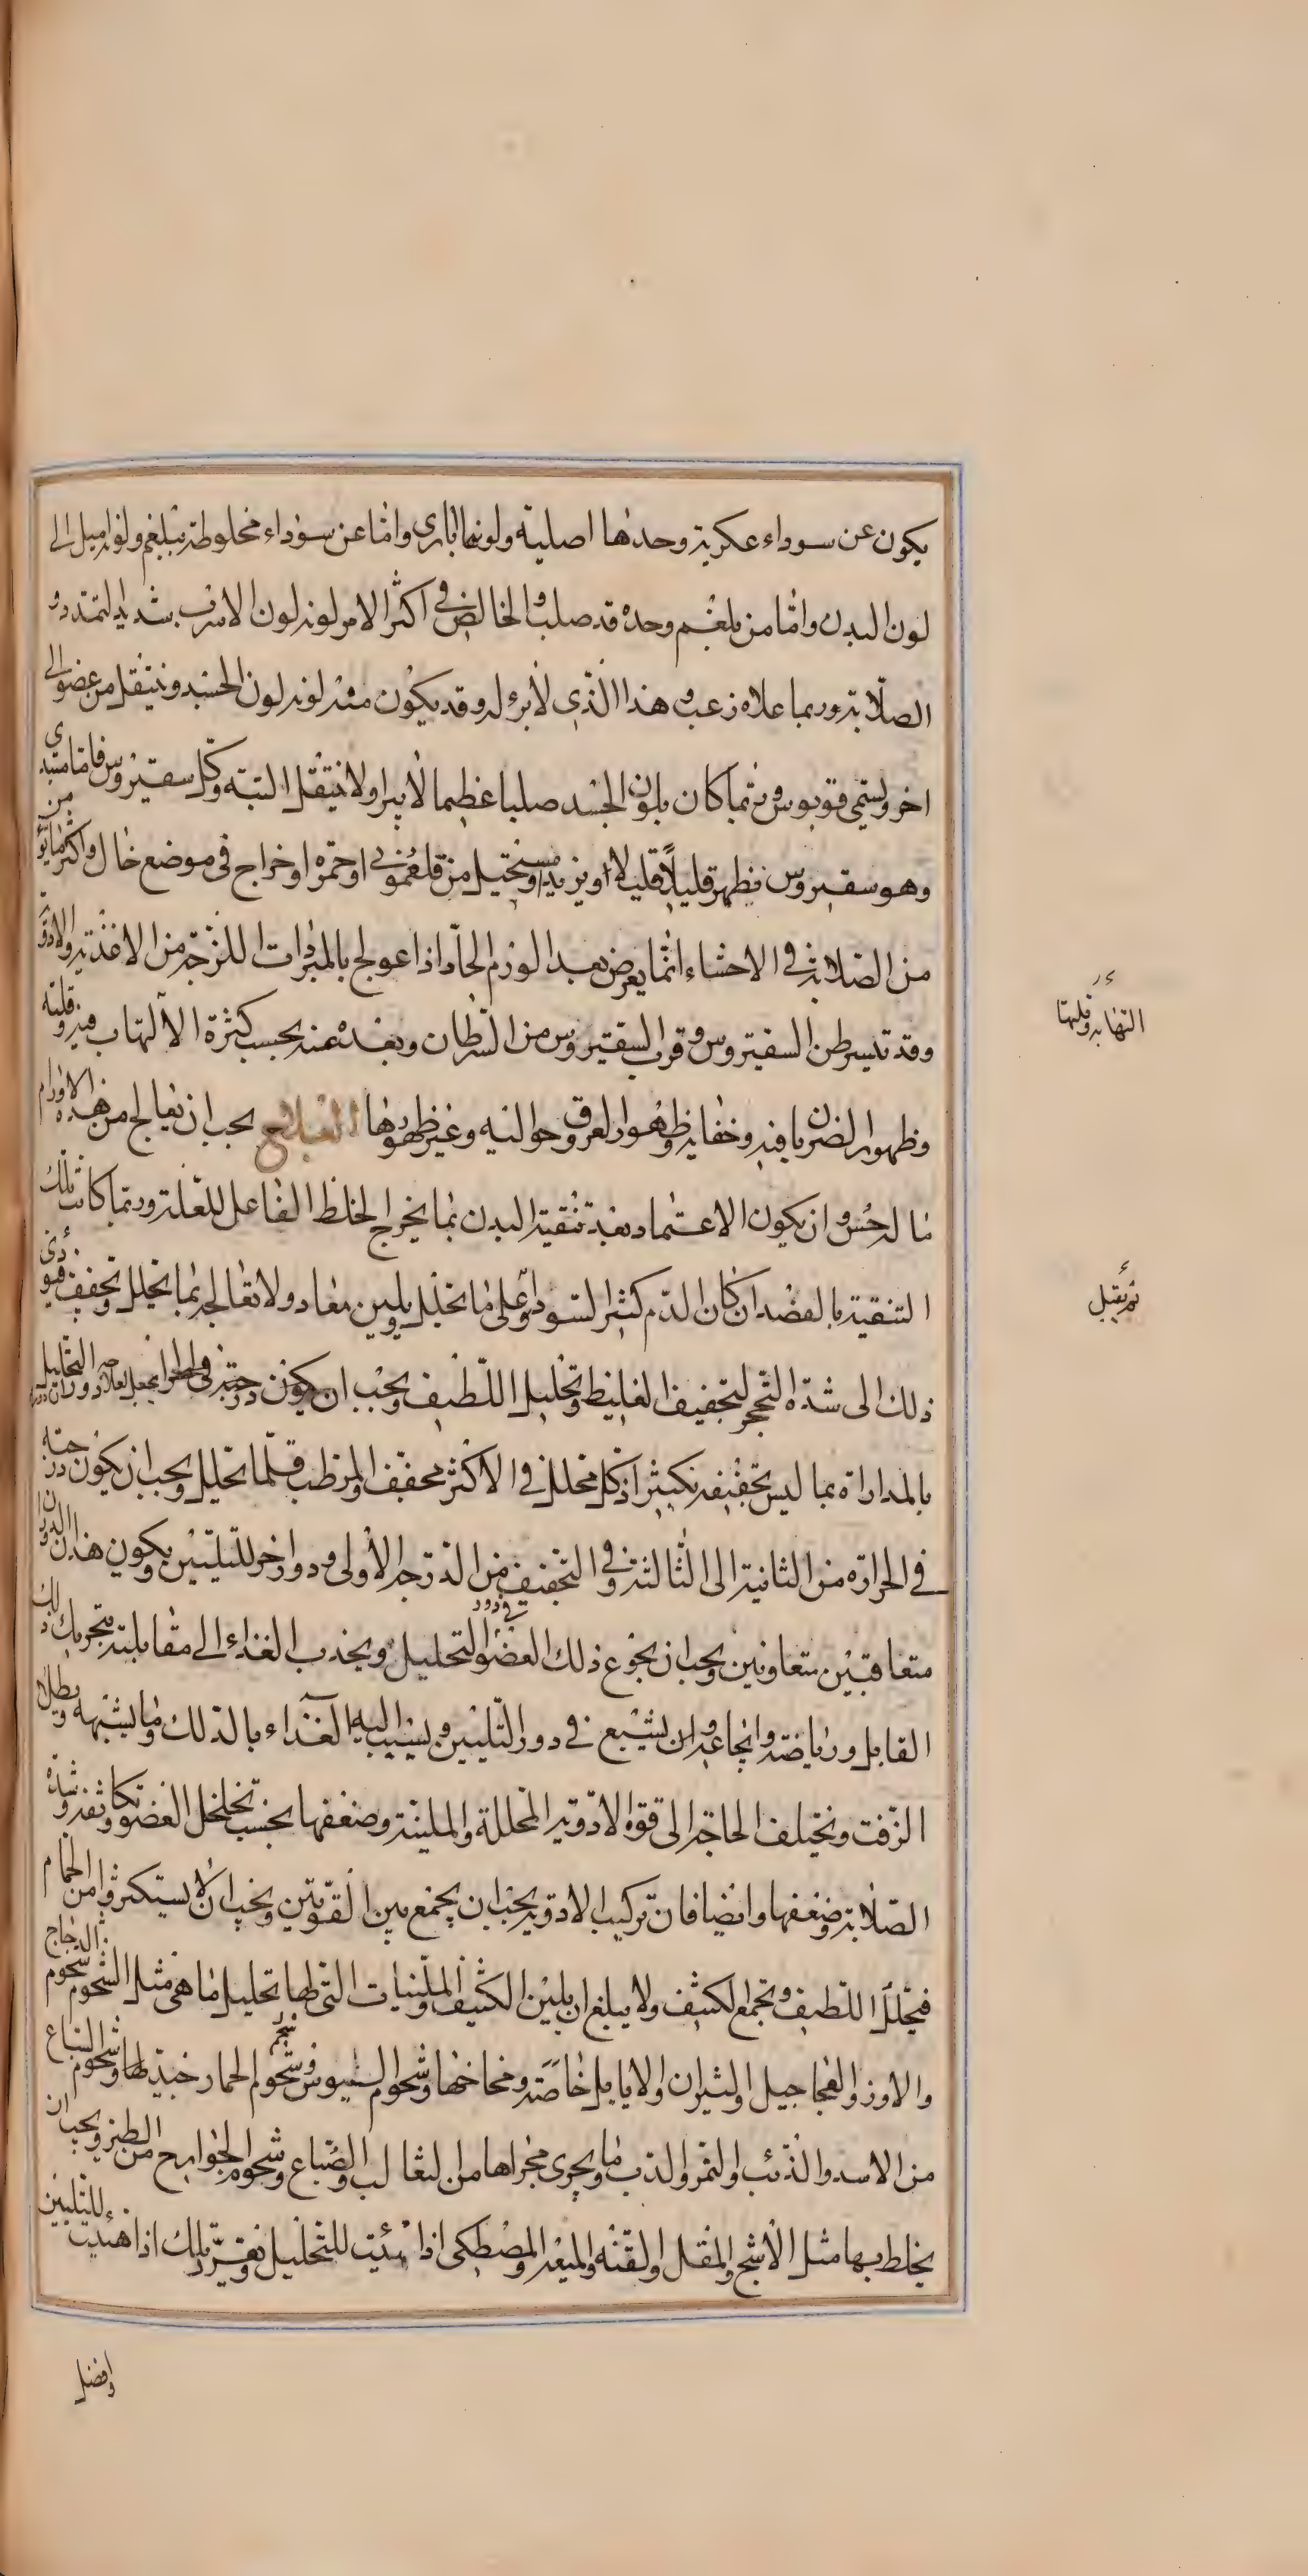 يكون عن سوداء عكرية وحدها اصلية ولونها اباري واما عن سوداء مخلوطة ببلغم ولونه اميل الى
لون البدن واما من بلغم وحده قد صلب والخالص فى اكثر الامر لونه لون الاسرب شديد التمدد و
الصلابة وربما علاه زغب وهذا الذى لا برء له وقد يكون منه لونه لون الجسد وينتقل من عضو الى
اخر ويسمى قونوس وربما كان بلون الجسد صلبا عظيما لا يبرا ولا ينتقل البتة وكل سقيروس فاما مبتدى
وهو سقيروس يظهر قليلاً قليلا ويزيد او مستحيل من فلغمونى او حمرة او خراج فى موضع خال واكثر ما
من الصلابة فى الاحشاء انما يعرض بعد الورم الحاد اذا عولج بالمبردات اللزجة من الاغذية والادوية
وقد يتسرطن السقيروس وقرب السقيروس من السرطان وبعده عنه بحسب كثرة الالتهاب فيه وقلته
وظهور الضربان فيه وخفائه وظهور العروق حواليه وغير ظهورها العلاج يجب ان يعالج من هذه الاورام
ما له حس وان يكون الاعتماد بعد تنقية البدن بما يخرج الخلط الفاعل للعلة وربما كانت تلك
التنقية بالفصد ان كان الدم كثير السوداء وعلى ما يحلل ويلين معا ولا تعالجه بما يحلل ويجفف فيؤدى
ذلك الى شدة التحجر لتجفيف الغليظ وتحليل اللطيف ويجب ان يكون
بالمداراة بما ليس تجفيفه بكثير اذ كل محلل فى الاكثر مجفف والمرطب قلما يحلل ويجب ان يكون درجته
فى الحرارة من الثانية الى الثالثة وفى التجفيف من الدرجة الاولى ودور اخر للتليين ويكون هذان الدوران
متعاقبين متعاونين ويجب ان يجوع ذلك العضو فى دور التحليل ويجذب الغذاء الى مقابلته بتحريك ذلك
القابل ورياضته واجاعته وان يشبع فى دور التليين ويسيب اليه الغذاء بالدلك وما يشبهه وبطلاء
الزفت وتختلف الحاجة الى قوة الادوية المحللة والملينة وضعفها بحسب تخلخل العضو وتكاثفه وشدة
الصلابة وضعفها وايضا فان تركيب الادوية يجب ان يجمع بين القوتين ويجب ان لا يستكثروا من الحمام
فيحلل اللطيف ويجمع الكثيف ولا يبلغ ان يلين الكثيف والملينات التى لها تحليل ما هى مثل الشحوم شحوم الدجاج
والاوز والعجاجيل والثيران والايايل خاصة ومخاخها وشحوم التيوس وشحوم الحمار جيد لها وشحوم السباع
من الاسد والذئب والنمر والدب وما يجرى مجراها من الثعالب والضباع وشحوم الجوارح من الطير ويجب ان
يخلط بها مثل الاشج والمقل والقنة والميعة والمصطكى اذا هيئت للتحليل وتعرى تلك اذا هيئت للتليين
وافضل
التهابه وقلتها
ثم يقبل